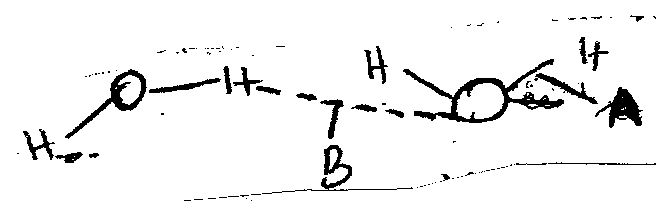 H O H H O H A
B